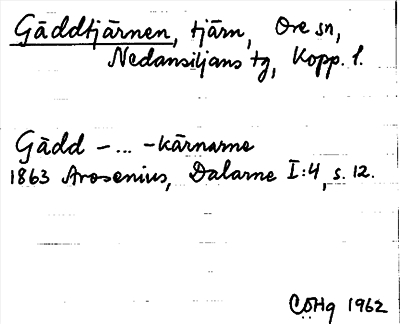 Gäddtjärnen, tjärn, Ore sn,
Nedansiljans tg, Kopp. l.
Gädd - ... -kärnarne
1863 Arosenius, Dalarne I:4, s. 12.
CÖHg 1962